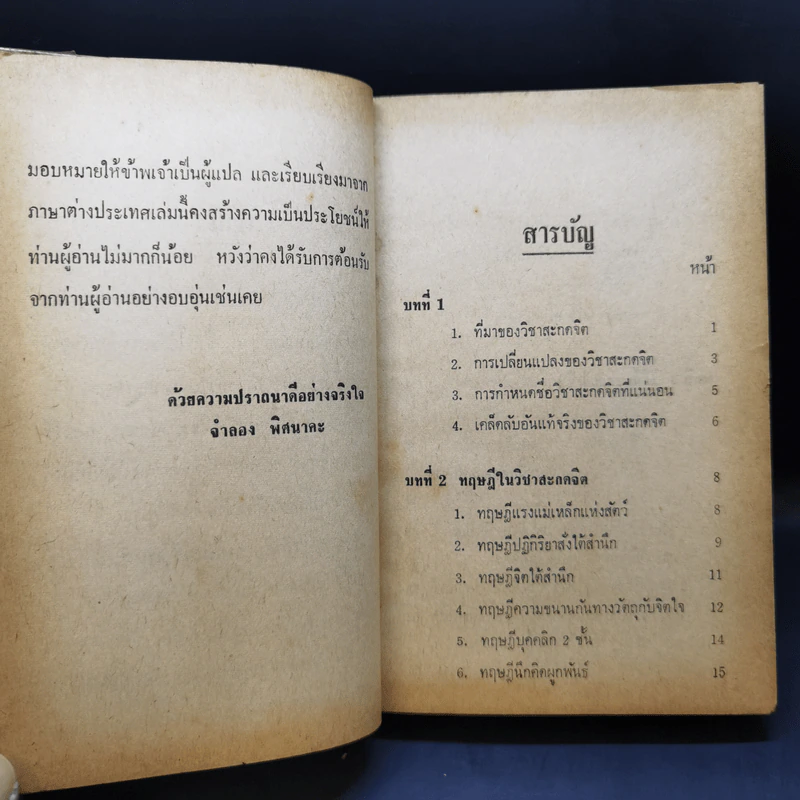 มอบหมายให้ข้าพเจ้าเป็นผู้แปล และเรียบเรียงมาจาก
ภาษาต่างประเทศเล่มนี้คงสร้างความเป็นประโยชน์ให้
ท่านผู้อ่านไม่มากก็น้อย หวังว่าคงได้รับการต้อนรับ
จากท่านผู้อ่านอย่างอบอุ่นเช่นเคย
ด้วยความปราถนาดีอย่างจริงใจ
จำลอง พิศนาคะ
สารบัญ
หน้า
บทที่ 1
1. ที่มาของวิชาสะกดจิต 1
2. การเปลี่ยนแปลงของวิชาสะกดจิต 3
3. การกำหนดชื่อวิชาสะกดจิตที่แน่นอน 5
4. เคล็ดลับอันแท้จริงของวิชาสะกดจิต 6
บทที่ 2 ทฤษฎีในวิชาสะกดจิต 8
1. ทฤษฎีแรงแม่เหล็กแห่งสัตว์ 8
2. ทฤษฎีปฏิกิริยาสั่งใต้สำนึก 9
3. ทฤษฎีจิตใต้สำนึก 11
4. ทฤษฎีความขนานกันทางวัตถุกับจิตใจ 12
5. ทฤษฎีบุคคลิก 2 ชั้น 14
6. ทฤษฎีนึกคิดผูกพันธ์ 15